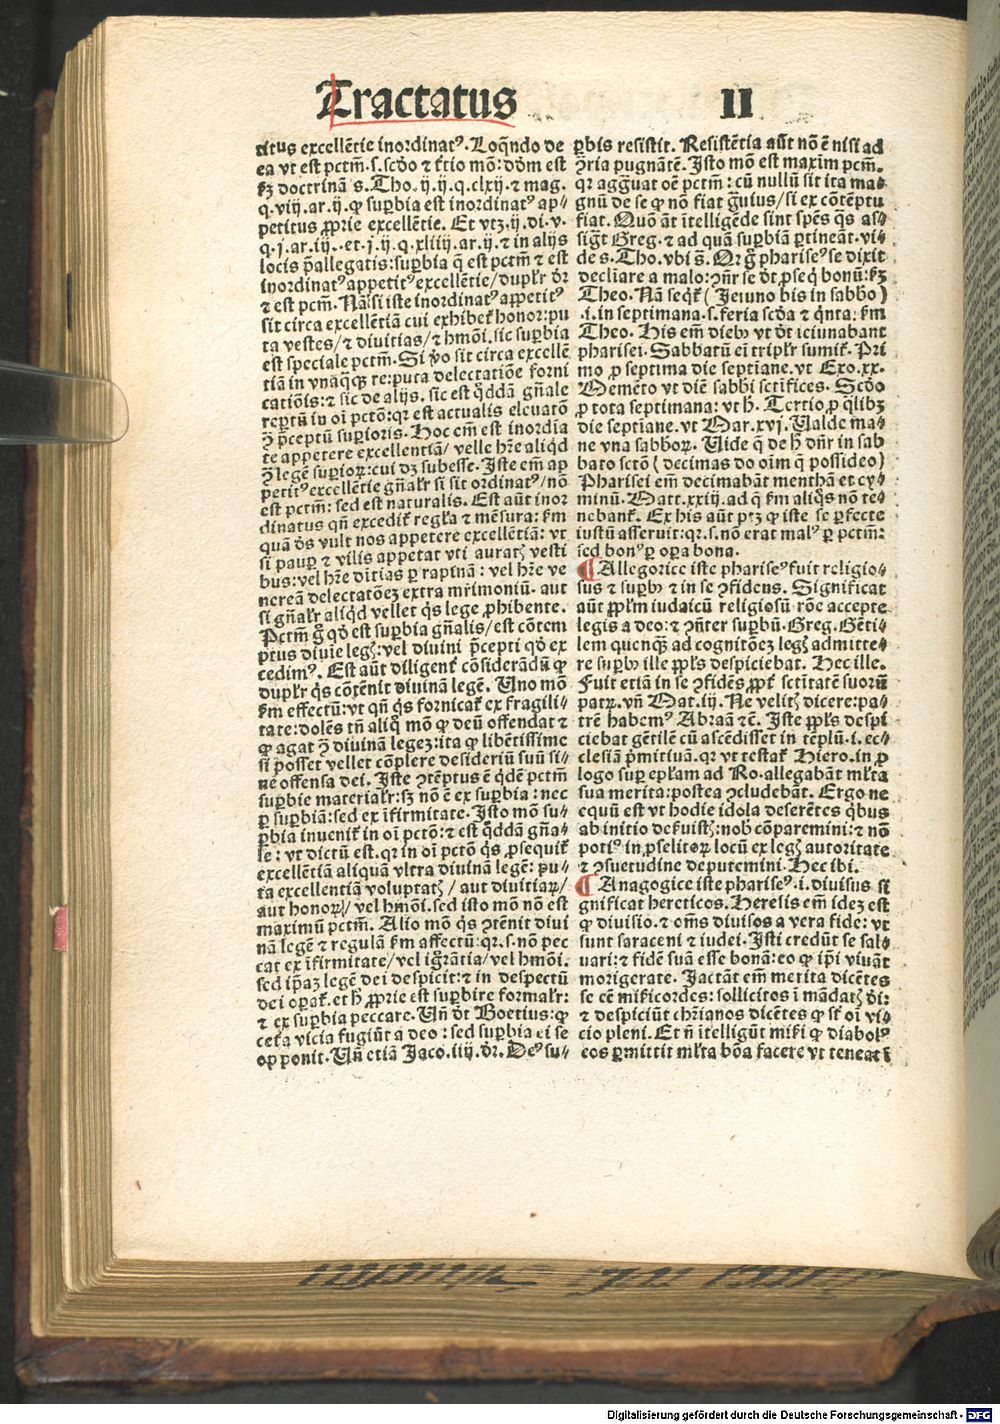 Tractatus II
titus excellētie inordinatꝰ. Loqn̄do de
ea vt est pctm̄.s.scd̄o ⁊ t̄tio mō: dd̄m est
ẜm doctrinā s. Tho. ij. ij. q. clxij. ⁊ mag.
q. viij. ar. ij. ꝙ suꝑbia est inordinatꝰ ap⸗
petitus ꝓprie excellētie. Et vtꝫ. ij. di. v.
q. j. ar. iij. et. j. ij. q. xliiij. ar. ij. ⁊ in alijs
locis p̄allegatis: suꝑbia q̄ est pctm̄ ⁊ est
inordinatꝰ appetitꝰ excellētie/ duplr̄ dr̄
⁊ est pcm̄. Nā si iste inordinatꝰ appetitꝰ
sit circa excellētiā cui exhibet᷑ honor: pu
ta vestes/ ⁊ diuitias/ ⁊ hmōi. sic suꝑbia
est speciale pctm̄. Si v̄o sit circa excellē
tiā in vnaq̄ꝗ re: puta delectatiōe forni
catiōis: ⁊ sic de alijs. sic est q̄ddā gn̄ale
reꝑtū in oi pctō: qꝛ est actualis eleuatō
ꝯ p̄ceptū suꝑioris. Hoc em̄ est inordia
te appetere excellentiā/ velle hr̄e aliqd
ꝯ legē suꝑioꝝ: cui dꝫ subesse. Iste em̄ ap
petitꝰ excellētie gn̄alr̄ si sit ordinatꝰ/ nō
est pctm̄: sed est naturalis. Est aūt inor
dinatus qn̄ excedit᷑ regl̄a ⁊ mēsura: ẜm
quā dꝰs vult nos appetere excellētiā: vt
si pauꝑ ⁊ vilis appetat vti auratꝭ vesti
bus: vel hr̄e diuitias ꝑ rapinā: vel hr̄e ve
neream delectatōeꝫ extra mr̄imoniū. aut
si gn̄alr̄ aliqd vellet qꝰs lege ꝓhibente.
Pctm̄ g̊ qd̄ est suꝑbia gn̄alis/ est cōtem
ptus diuīe legꝭ: vel diuini p̄cepti qd̄ ex
cedimꝰ. Est aūt diligent᷑ cōsiderādū ꝙ
duplr̄ qꝰs cōtēnit diuinā legē. Uno mō
ẜm effectū: vt qn̄ qꝰs fornicat᷑ ex fragili⸗
tate: dolēs tn̄ aliq̊ mō ꝙ deū offendat ⁊
ꝙ agat ꝯ diuinā legeꝫ: ita ꝙ libētissime
si posset vellet cōplere desideriū suū si⸗
ne offensa dei. Iste ꝯtēptus ē qd̄ē pctm̄
suꝑbie materialr̄: sꝫ nō ē ex suꝑbia: nec
ꝑ suꝑbiā: sed ex ifirmitate. Isto mō su⸗
ꝑbia inuenit᷑ in oi pctō: ⁊ est q̄ddā gn̄a⸗
le: vt dictū est. qꝛ in oi pctō qꝰs ꝓsequit᷑
excellētiā aliquā vltra diuinā legē: pu⸗
ta excellentiā voluptatꝭ/ aut diuitiaꝝ/
aut honoꝝ/ vel hmōi. sed isto mō nō est
maximū pctm̄. Alio mō qꝰs ꝯtēnit diui
nā legē ⁊ regulā ẜm affectū: qꝛ. s. nō pec
cat ex ifirmitate/ vel ignorātia/ vel hmōi.
sed ip̄aꝫ legē dei despicit: ⁊ in despectū
dei oꝑat᷑. et hꝰ ꝓprie est suꝑbire formalr̄:
⁊ ex suꝑbia peccare. Un̄ dt̄ Boetius: ꝙ
cet᷑a vicia fugiūt a deo: sed suꝑbia ei se
opponit. Un̄ etiā Jaco. iiij. dr̄. Deꝰ su⸗
ꝑbis resistit. Resistētia aūt nō ē nisi ad
ꝯria pugnātē. Isto mō est maxim̄ pcm̄.
qꝛ agg̊uat oē pctm̄: cū nullū sit ita ma⸗
gnū de se ꝙ nō fiat g̊uius/ si ex cōtēptu
fiat. Quō āt itelligēde sint spēs qꝰs as⸗
sig̊t Greg. ⁊ ad quā suꝑbiā ꝑtineāt. vi⸗
de s. Tho. vbi s̄. Qꝛ g̊ phariseꝰ se dixit
declīare a malo: ꝯn̄r se dt̄ ꝓseq̊ bonū: ẜm
Theo. Nā seqt᷑ (Jeiuno bis in sabbō)
.i. in septimana. s. feria scd̄a ⁊ qn̄ta. ẜm
Theo. His em̄ diebꝰ vt dt̄ ieiunabant
pharisei. Sabbatū ei tripl̄r sumit᷑. Pri
mo ꝓ septima die septiane. vt Exo. xx.
Memēto vt diē sabbi sctīfices. Scd̄o
ꝓ tota septimana: vt hꝰ. Tertio ꝓ q̄libꝫ
die septiane. vt Mar. xvj. Ualde ma⸗
ne vna sabboꝝ. Uide q̄ de hꝰ dn̄r in sab
bato sctō (decimas do oim̄ q̄ possideo)
Pharisei em̄ decimabāt menthā et cy⸗
minū. Matt. xxiij. ad q̄ ẜm aliq̊s nō te⸗
nebant᷑. Ex his aūt ptꝫ ꝙ iste se ꝑfecte
iustū asseruit: qꝛ. s. nō erat malꝰ ꝑ pctm̄:
sed bonꝰ ꝑ oꝑa bona.
¶ Allegorice iste phariseꝰ fuit religio⸗
sus ⁊ suꝑbꝰ ⁊ in se ꝯfidens. Significat
aūt ppl̄m iudaicū religiosū rōe accepte
legis a deo: ⁊ ꝯn̄ter suꝑbū. Greg. Gēti⸗
lem quenq̄ꝫ ad cognitōeꝫ legꝭ admitte⸗
re suꝑbꝰ ille ppl̄s despiciebat. Hec ille.
Fuit etiā in se ꝯfidēs, ꝓpt᷑ sctītatē suorū
patꝝ. vn̄ Mat. iij. Ne velitꝭ dicere: pa⸗
trē habemꝰ Abraā ⁊c̄. Iste ppl̄s despi
ciebat gētilē cū ascēdisset in tēplū .i. ec⸗
clesiā p̄mitiuā. qꝛ vt testat᷑ Hiero. in ꝓ
logo suꝑ epl̄am ad Ro. allegabāt ml̄ta
sua merita: postea ꝯcludebāt. Ergo ne
equū est vt hodie idola deserētes q̊bus
ab initio deseruistꝭ: nobꝭ cōparemini: ⁊ nō
potiꝰ in ꝓselitoꝝ locū ex legꝭ autoritate
⁊ ꝯsuetudine deputemini. Hec ibi.
¶ Anagogice iste phariseꝰ .i. diuisus si
gnificat hereticos. Heresis em̄ ideꝫ est
ꝙ diuisio. ⁊ oms̄ diuisos a vera fide: vt
sunt saraceni ⁊ iudei. Isti credūt se sal⸗
uari: ⁊ fidē suā esse bonā: eo ꝙ ip̄i viuāt
morigerate. Jactāt em̄ merita dicētes
se eē mīsicordes: sollicitos i mādatꝭ dei:
⁊ despiciūt chr̄ianos dicētes ꝙ st̄ oi vi⸗
cio pleni. Et n̄ itelligūt mis̄i ꝙ diabolꝰ
eos ꝑmittit ml̄ta bōa facere vt teneat i
Digitalisierung gefördert durch die Deutsche Forschungsgemeinschaft - DFG